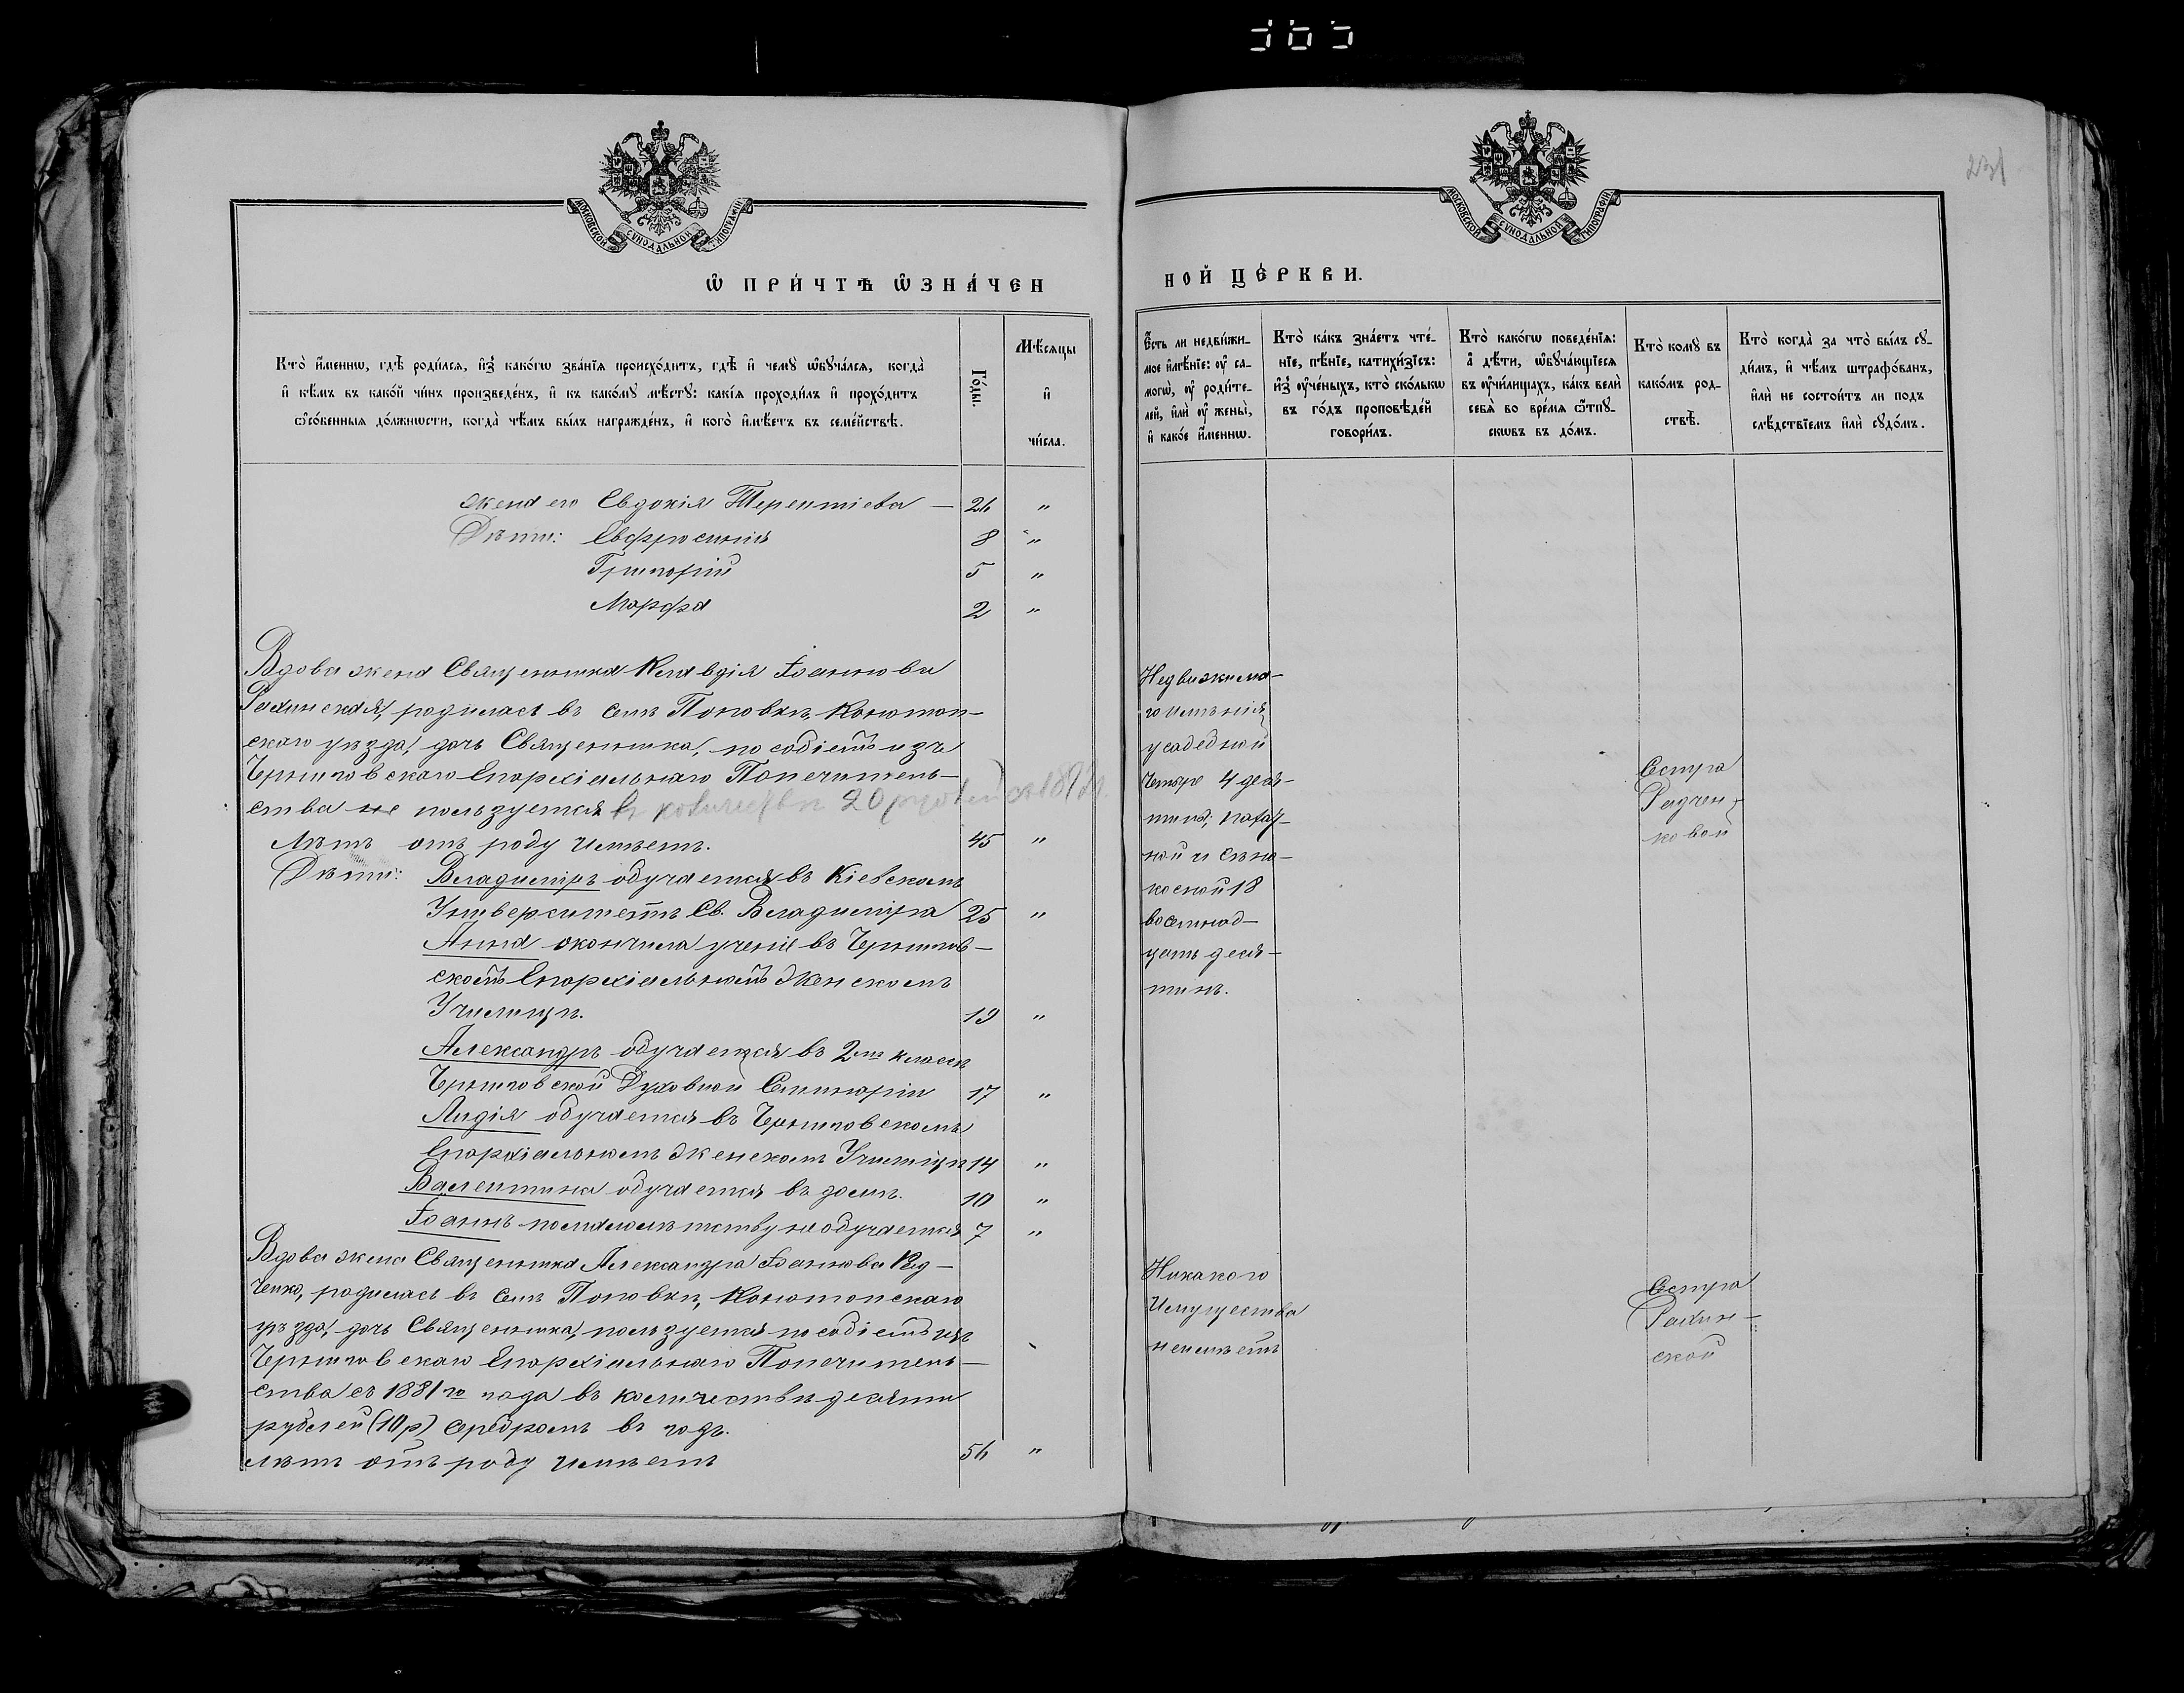 365
231
МОСКОВСКОЙ СѴНОДАЛЬНОЙ ТИПОГРАФІИ
МОСКОВСКОЙ СѴНОДАЛЬНОЙ ТИПОГРАФІИ
Ѡ ПРИ́ЧТѢ Ѡ҆ЗНА́ЧЕН
НОЙ ЦЕ́РКВИ.
Кто̀ и҆́меннѡ, гдѣ̀ роди́лсѧ, и҆з̾ како́гѡ зва́нїѧ происхо́дитъ, гдѣ̀ и҆ чемꙋ̀ ѡ҆бꙋча́лсѧ, когда̀
и҆ кѣ́мъ въ како́й чи́нъ произведе́нъ, и҆ къ како́мꙋ мѣ́стꙋ: какі́ѧ проходи́лъ и҆ прохо́дитъ
ѻ҆со́бенныѧ до́лжнѡсти, когда̀ чѣ́мъ бы́лъ награжде́нъ, и҆ кого̀ и҆мѣ́етъ въ семе́йствѣ.
Го́ды.
Мѣ́сѧцы
и҆
чи́сла.
Є҆́сть ли недви́жи-
мое и҆мѣ́нїе: ᲂу҆ са-
могѡ̀, ᲂу҆ роди́те-
лей, и҆лѝ ᲂу҆ жены̀,
и҆ како́е и҆́меннѡ.
Кто̀ ка́къ зна́етъ чте́-
нїе, пѣ́нїе, катихи́зїсъ:
и҆з̾ ᲂу҆че́ныхъ, кто̀ ско́лькѡ
въ го́дъ проповѣ́дей
говори́лъ.
Кто̀ како́гѡ поведе́нїѧ:
а҆ дѣ́ти, ѡ҆бꙋча́ющїесѧ
въ ᲂу҆чи́лищахъ, ка́къ велѝ
себѧ̀ во вре́мѧ ѿпꙋ-
скѡвъ въ до́мъ.
Кто̀ комꙋ̀ въ
како́мъ род-
ствѣ̀.
Кто̀ когда̀ за что̀ бы́лъ сꙋ-
ди́мъ, и҆ чѣ́мъ штрафо́ванъ,
и҆лѝ не состои́тъ ли под̾
слѣ́дствїемъ и҆лѝ сꙋдо́мъ.
жена его Евдокія Терентіева — 26 "
Дѣти: Евфросинія 8 "
Григорій 5 "
Марфа 2 "
Вдова жена Священника Клавдія Іоаннова
Рахинская, родилась въ селѣ Поповкѣ, Конотоп-
скаго уѣзда, дочь Священника, пособіемъ изъ
Черниговскаго Епархіальнаго Попечитель-
ства не пользуется въ количествѣ 20 рублей
Лѣтъ отъ роду имѣетъ. 45 "
Дѣти: Владиміръ обучается въ Кіевскомъ
Университетѣ Св. Владиміра 25 "
Анна окончила ученіе въ Чернигов-
скомъ Епархіальномъ Женскомъ
Училищѣ. 19 "
Александръ обучается въ 2мъ классѣ
Черниговской Духовной Семинаріи 17 "
Лидія обучается въ Черниговскомъ
Епархіальномъ Женскомъ Училищѣ 14 "
Валентина обучается въ домѣ. 10 "
Іоаннъ по малолѣтству не обучается 7 "
Вдова жена Священника Александра Іоаннова Рад-
ченко, родилась въ селѣ Поповкѣ, Конотопскаго
уѣзда, дочь Священника, пользуется пособіемъ изъ
Черниговскаго Епархіальнаго Попечитель-
ства съ 1881го года въ количествѣ десяти
рублей (10 р) серебромъ въ годъ.
лѣтъ отъ роду имѣетъ 56 "
Недвижима-
го имѣнія
усадебной
четыре 4 деся-
тины, пахат-
ной и сѣно-
косной 18
восемнад-
цать деся-
тинъ.
Сестра
Радчен-
ковой
Никакого
Имущества
не имѣетъ
Сестра
Рахин-
ской